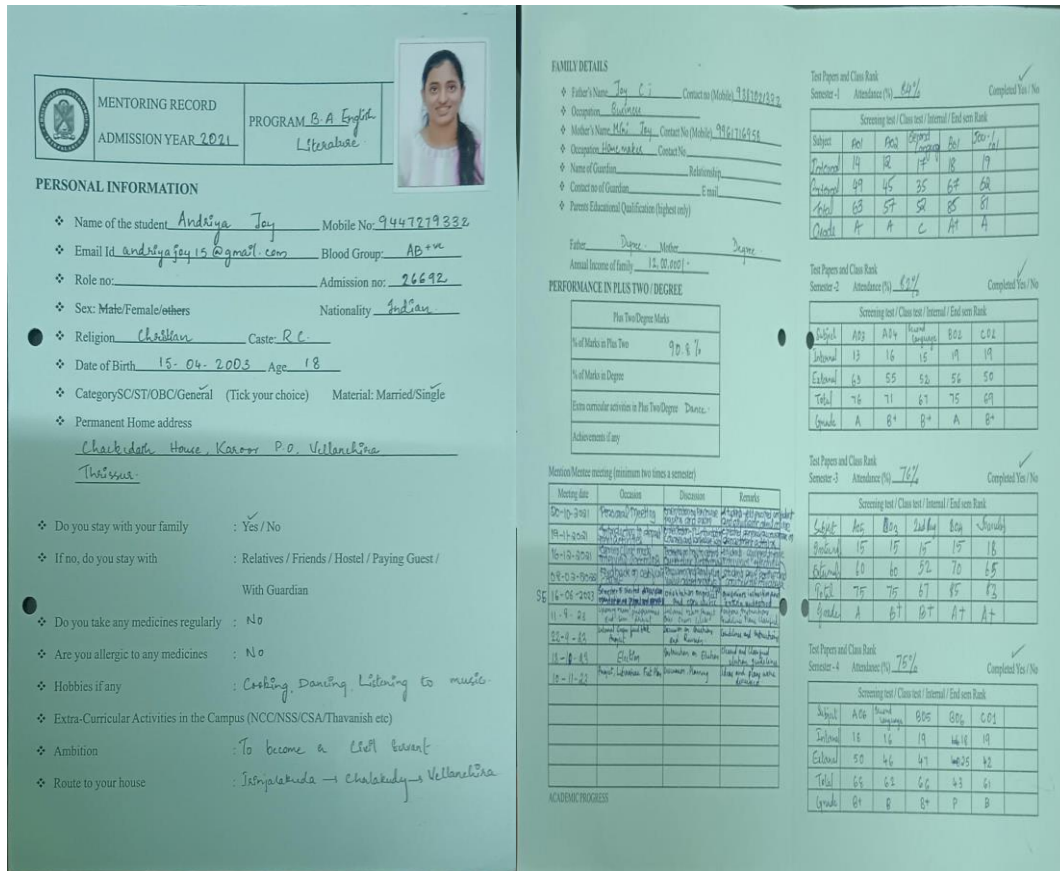 MENTORING RECORD
ADMISSION YEAR 2021
PROGRAM B.A English
Literature
PERSONAL INFORMATION
Name of the student Andriya Joy Mobile No: 9447279332
Email Id andriyajoy15@gmail.com Blood Group: AB+ve
Role no: Admission no: 26692
Sex: Male/Female/others Nationality Indian
Religion Christian Caste: R C
Date of Birth 15-04-2003 Age 18
CategorySC/ST/OBC/General (Tick your choice) Material: Married/Single
Permanent Home address
House, Karoor P.O, Vellanchira
Thrissur
Do you stay with your family : Yes / No
If no, do you stay with : Relatives / Friends / Hostel / Paying Guest /
With Guardian
Do you take any medicines regularly : No
Are you allergic to any medicines : No
Hobbies if any : Cooking, Dancing, Listening to music
Extra-Curricular Activities in the Campus (NCC/NSS/CSA/Thavanish etc)
Ambition : To become a Civil Servant
Route to your house : Irinjalakuda → Chalakudy → Vellanchira
FAMILY DETAILS
Father's Name Joy C i Contact no (Mobile)
Occupation Business
Mother's Name Mini Joy Contact No (Mobile)
Occupation Home maker Contact No
Name of Guardian Relationship
Contact no of Guardian E mail
Parents Educational Qualification (highest only)
Father Degree Mother Degree
Annual Income of family 12,00,000/-
PERFORMANCE IN PLUS TWO / DEGREE
Plus Two/Degree Marks
% of Marks in Plus Two 90.8%
% of Marks in Degree
Extra curricular activities in Plus Two/Degree Dance
Achievements if any
Mention/Mentee meeting (minimum two times a semester)
Meeting date Occasion Discussion Remarks
20-10-2021 Personal Meeting
19-11-2021
16-12-2021
S5 16-06-2023
11-8-23
13-10-23 Election
ACADEMIC PROGRESS
Test Papers and Class Rank
Semester -1 Attendance (%) 84% Completed Yes / No
Screening test / Class test / Internal / End sem Rank
Subject A01 A02 Second Language B01
Internal 14 12 17 18 19
External 49 45 35 67 62
Total 63 57 52 85 81
Grade A A C A+ A
Test Papers and Class Rank
Semester -2 Attendance (%) 82% Completed Yes / No
Screening test / Class test / Internal / End sem Rank
Subject A03 A04 Second Language B02 C02
Internal 13 16 15 19 19
External 63 55 52 56 50
Total 76 71 67 75 69
Grade A B+ B+ A B+
Test Papers and Class Rank
Semester -3 Attendance (%) 76% Completed Yes / No
Screening test / Class test / Internal / End sem Rank
Subject A05
Internal 15 15 15 15 18
External 60 60 52 70 65
Total 75 75 67 85 83
Grade A A+ B+ A+ A+
Test Papers and Class Rank
Semester -4 Attendance (%) 75% Completed Yes / No
Screening test / Class test / Internal / End sem Rank
Subject A06 Second Language B05 B06 C01
Internal 18 16 19 18 19
External 50 46 47 25 42
Total 68 62 66 43 61
Grade B+ B B+ P B